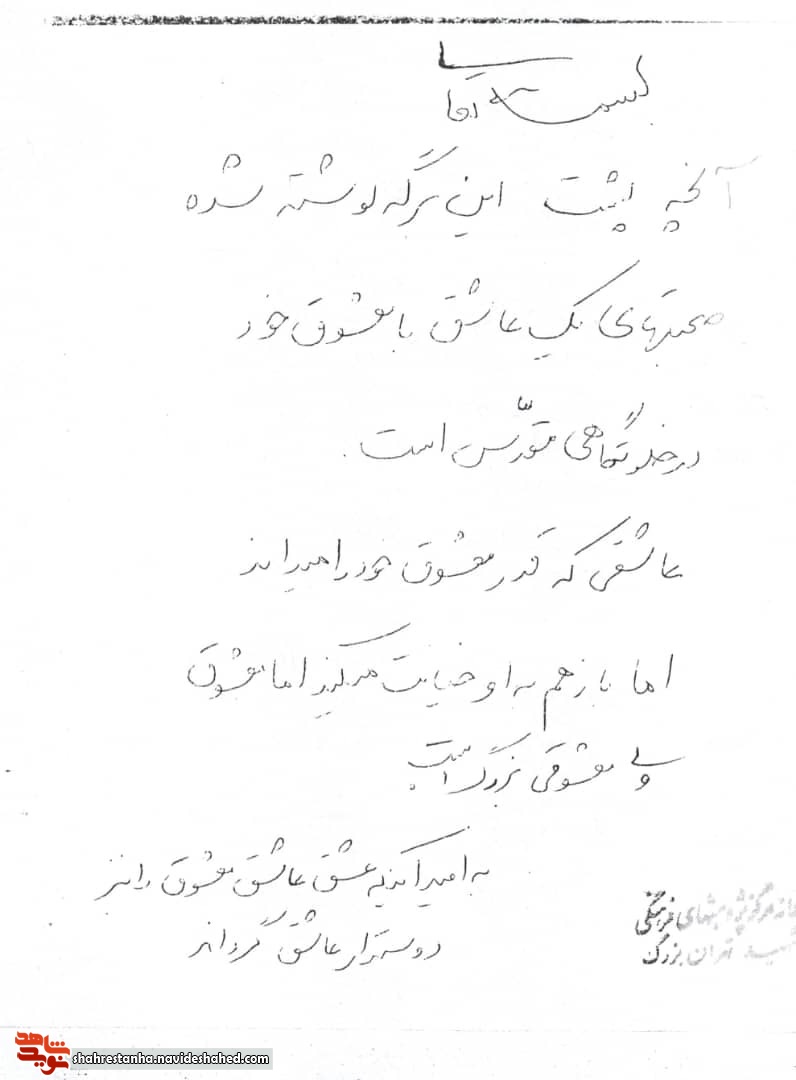 بسمه تعالی
آنچه پشت این برگه نوشته شده
صحبتهای یک عاشق با معشوق خود
در خلوتگاهی مقدّس است.
عاشقی که قدر معشوق خود را میداند
اما باز هم به او خیانت میکند اما معشوق
وی معشوقی بزرگ است.
به امید آنکه عشق عاشق معشوق را نیز
دوستدار عاشق گرداند
مرکز پژوهشهای فرهنگی
تهران بزرگ
نوید شاهد
shahrestanha.navideshahed.com